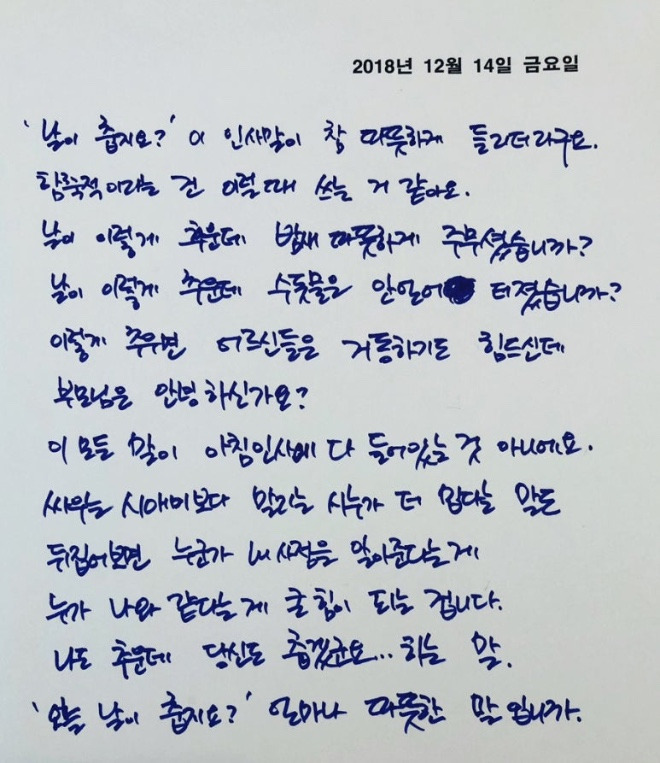 2018년 12월 14일 금요일
'날이 춥지요?' 이 인사말이 참 따뜻하게 들리더라구요.
함축적이라는 건 이럴때 쓰는 거 같아요.
날이 이렇게 추운데 밤새 따뜻하게 주무셨습니까?
날이 이렇게 추운데 수돗물은 안얼어 터졌습니까?
이렇게 추우면 어르신들은 거동하기도 힘드신데
부모님은 안녕하신가요?
이 모든 말이 아침인사에 다 들어있는 것 아니에요.
싸우는 시애미보다 말리는 시누가 더 밉다는 말도
뒤집어보면 누군가 내 사정을 알아준다는게
누가 나와 같다는게 큰 힘이 되는 겁니다.
나도 추운데 당신도 춥겠군요... 하는 말.
'오늘 날이 춥지요?' 얼마나 따뜻한 말입니까.